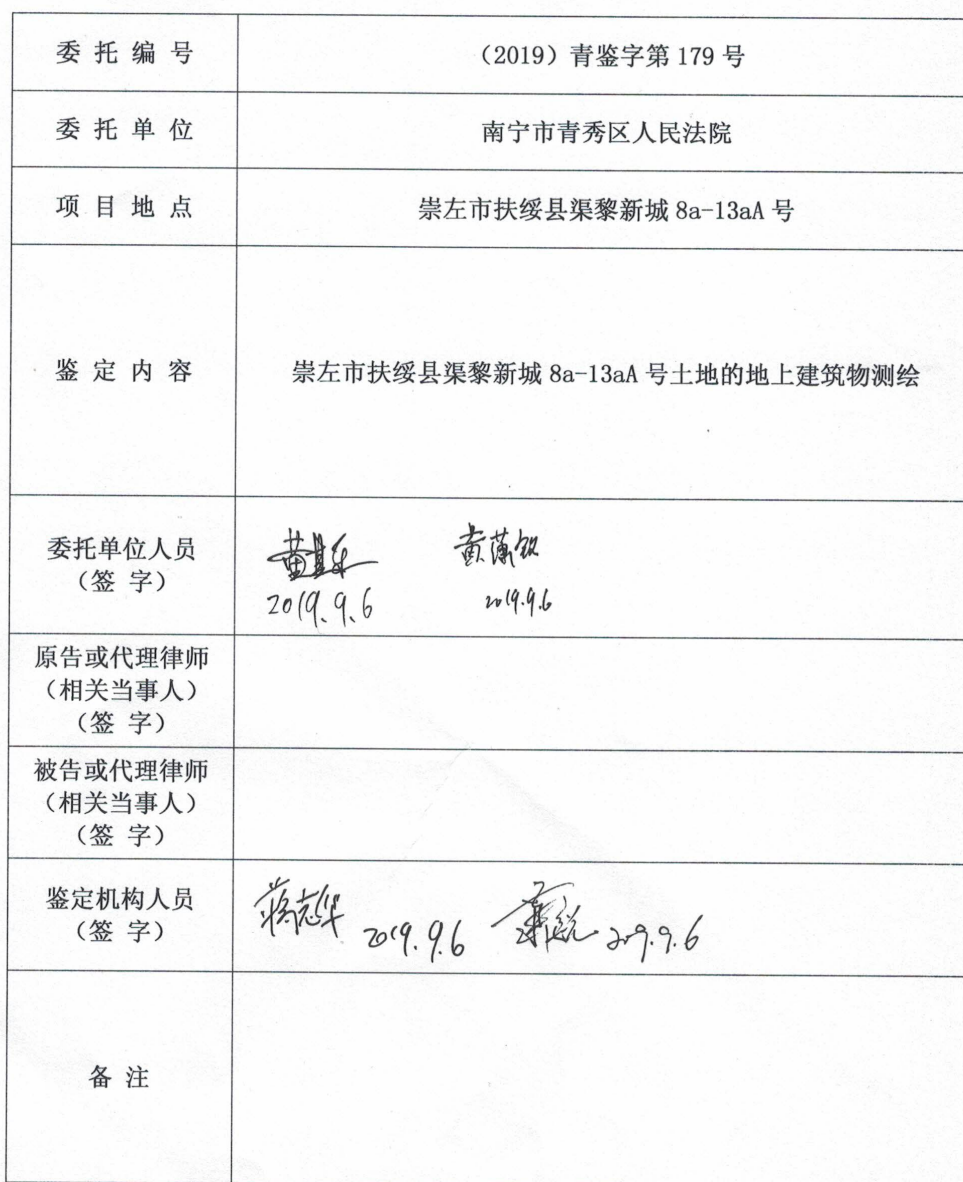 委托编号
（2019）青鉴字第 179 号
委托单位
南宁市青秀区人民法院
项目地点
崇左市扶绥县渠黎新城 8a-13aA 号
鉴定内容
崇左市扶绥县渠黎新城 8a-13aA 号土地的地上建筑物测绘
委托单位人员
（签 字）
2019.9.6
2019.9.6
原告或代理律师
（相关当事人）
（签 字）
被告或代理律师
（相关当事人）
（签 字）
鉴定机构人员
（签 字）
蒋志华 2019.9.6 2019.9.6
备 注